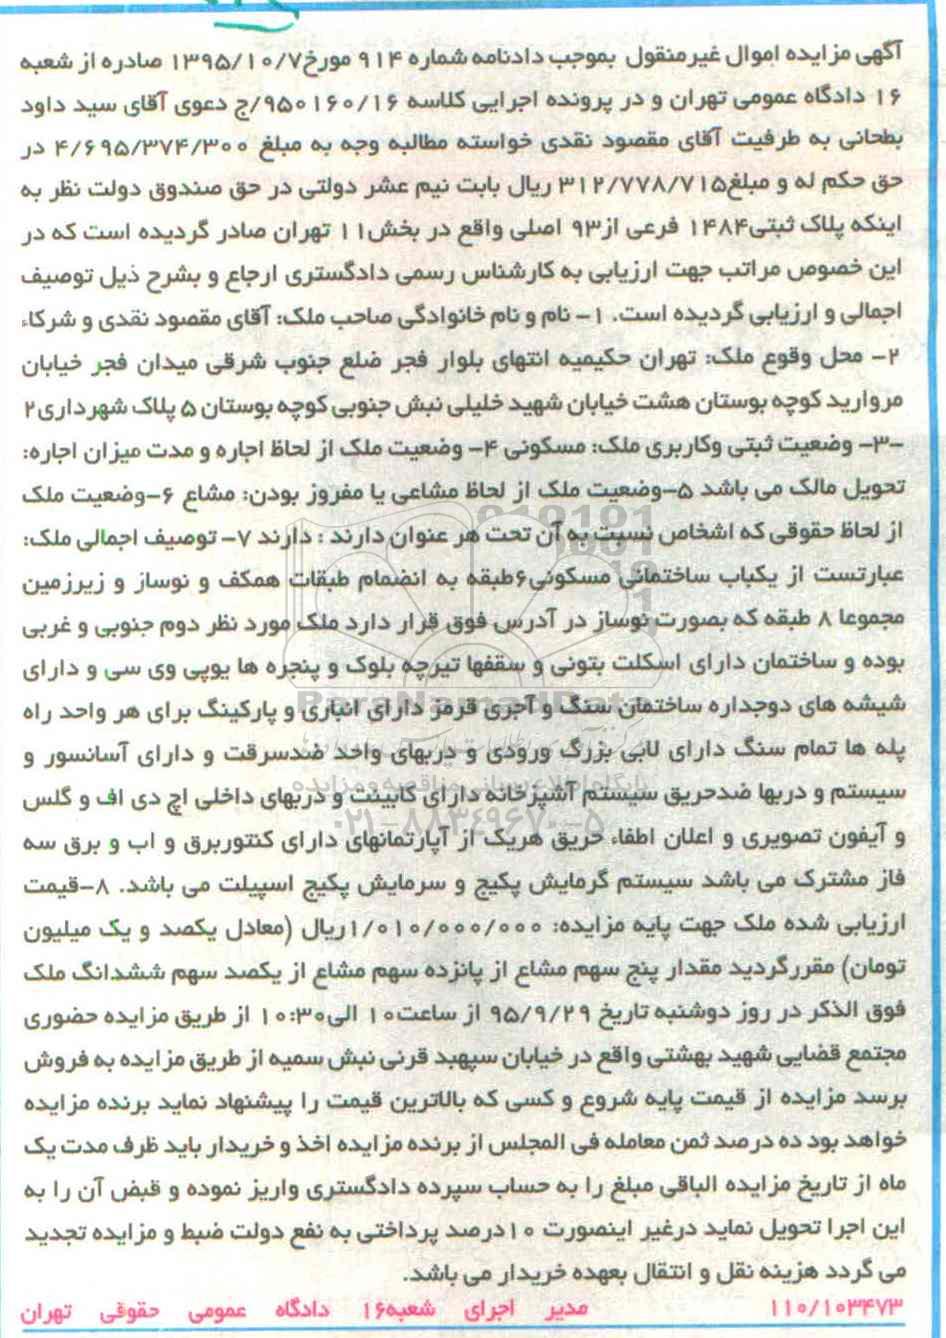 آگهی مزایده اموال غیرمنقول بموجب دادنامه شماره ۹۱۴ مورخ۱۳۹۵/۱۰/۷ صادره از شعبه
۱۶ دادگاه عمومی تهران و در پرونده اجرایی کلاسه ۹۵۰۱۶۰/۱۶/ج دعوی آقای سید داود
بطحانی به طرفیت آقای مقصود نقدی خواسته مطالبه وجه به مبلغ ۴/۶۹۵/۳۷۴/۳۰۰ در
حق حکم له و مبلغ۳۱۲/۷۷۸/۷۱۵ ریال بابت نیم عشر دولتی در حق صندوق دولت نظر به
اینکه پلاک ثبتی۱۴۸۴ فرعی از۹۳ اصلی واقع در بخش۱۱ تهران صادر گردیده است که در
این خصوص مراتب جهت ارزیابی به کارشناس رسمی دادگستری ارجاع و بشرح ذیل توصیف
اجمالی و ارزیابی گردیده است. ۱- نام و نام خانوادگی صاحب ملک: آقای مقصود نقدی و شرکاء
۲- محل وقوع ملک: تهران حکیمیه انتهای بلوار فجر ضلع جنوب شرقی میدان فجر خیابان
مروارید کوچه بوستان هشت خیابان شهید خلیلی نبش جنوبی کوچه بوستان ۵ پلاک شهرداری ۲
-۳- وضعیت ثبتی وکاربری ملک: مسکونی ۴- وضعیت ملک از لحاظ اجاره و مدت میزان اجاره:
تحویل مالک می باشد ۵-وضعیت ملک از لحاظ مشاعی یا مفروز بودن: مشاع ۶-وضعیت ملک
از لحاظ حقوقی که اشخاص نسبت به آن تحت هر عنوان دارند : دارند ۷- توصیف اجمالی ملک:
عبارتست از یکباب ساختمانی مسکونی۶طبقه به انضمام طبقات همکف و نوساز و زیرزمین
مجموعا ۸ طبقه که بصورت نوساز در آدرس فوق قرار دارد ملک مورد نظر دوم جنوبی و غربی
بوده و ساختمان دارای اسکلت بتونی و سقفها تیرچه بلوک و پنجره ها یوپی وی سی و دارای
شیشه های دوجداره ساختمان سنگ و آجری قرمز دارای انباری و پارکینگ برای هر واحد راه
پله ها تمام سنگ دارای لابی بزرگ ورودی و دربهای واحد ضدسرقت و دارای آسانسور و
سیستم و دربها ضدحریق سیستم آشپزخانه دارای کابینت و دربهای داخلی اچ دی اف و گلس
و آیفون تصویری و اعلان اطفاء حریق هریک از آپارتمانهای دارای کنتوربرق و اب و برق سه
فاز مشترک می باشد سیستم گرمایش پکیج و سرمایش پکیج اسپیلت می باشد. ۸-قیمت
ارزیابی شده ملک جهت پایه مزایده: ۱/۰۱۰/۰۰۰/۰۰۰ریال (معادل یکصد و یک میلیون
تومان) مقررگردید مقدار پنج سهم مشاع از پانزده سهم مشاع از یکصد سهم ششدانگ ملک
فوق الذکر در روز دوشنبه تاریخ ۹۵/۹/۲۹ از ساعت۱۰ الی۱۰:۳۰ از طریق مزایده حضوری
مجتمع قضایی شهید بهشتی واقع در خیابان سپهبد قرنی نبش سمیه از طریق مزایده به فروش
برسد مزایده از قیمت پایه شروع و کسی که بالاترین قیمت را پیشنهاد نماید برنده مزایده
خواهد بود ده درصد ثمن معامله فی المجلس از برنده مزایده اخذ و خریدار باید ظرف مدت یک
ماه از تاریخ مزایده الباقی مبلغ را به حساب سپرده دادگستری واریز نموده و قبض آن را به
این اجرا تحویل نماید درغیر اینصورت ۱۰درصد پرداختی به نفع دولت ضبط و مزایده تجدید
می گردد هزینه نقل و انتقال بعهده خریدار می باشد.
۱۱۰/۱۰۳۴۷۳ مدیر اجرای شعبه۱۶ دادگاه عمومی حقوقی تهران
ParsNamadData
پایگاه اطلاع رسانی مناقصه و مزایده
۰۲۱-۸۸۳۴۹۶۷۰-۵